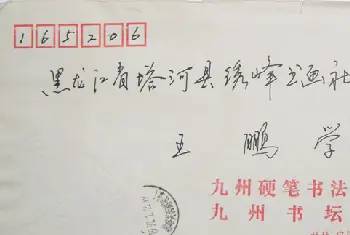 165206
黑龙江省塔河县绣峰书画社
王 鹏 学
九州硬笔书法
九州书坛